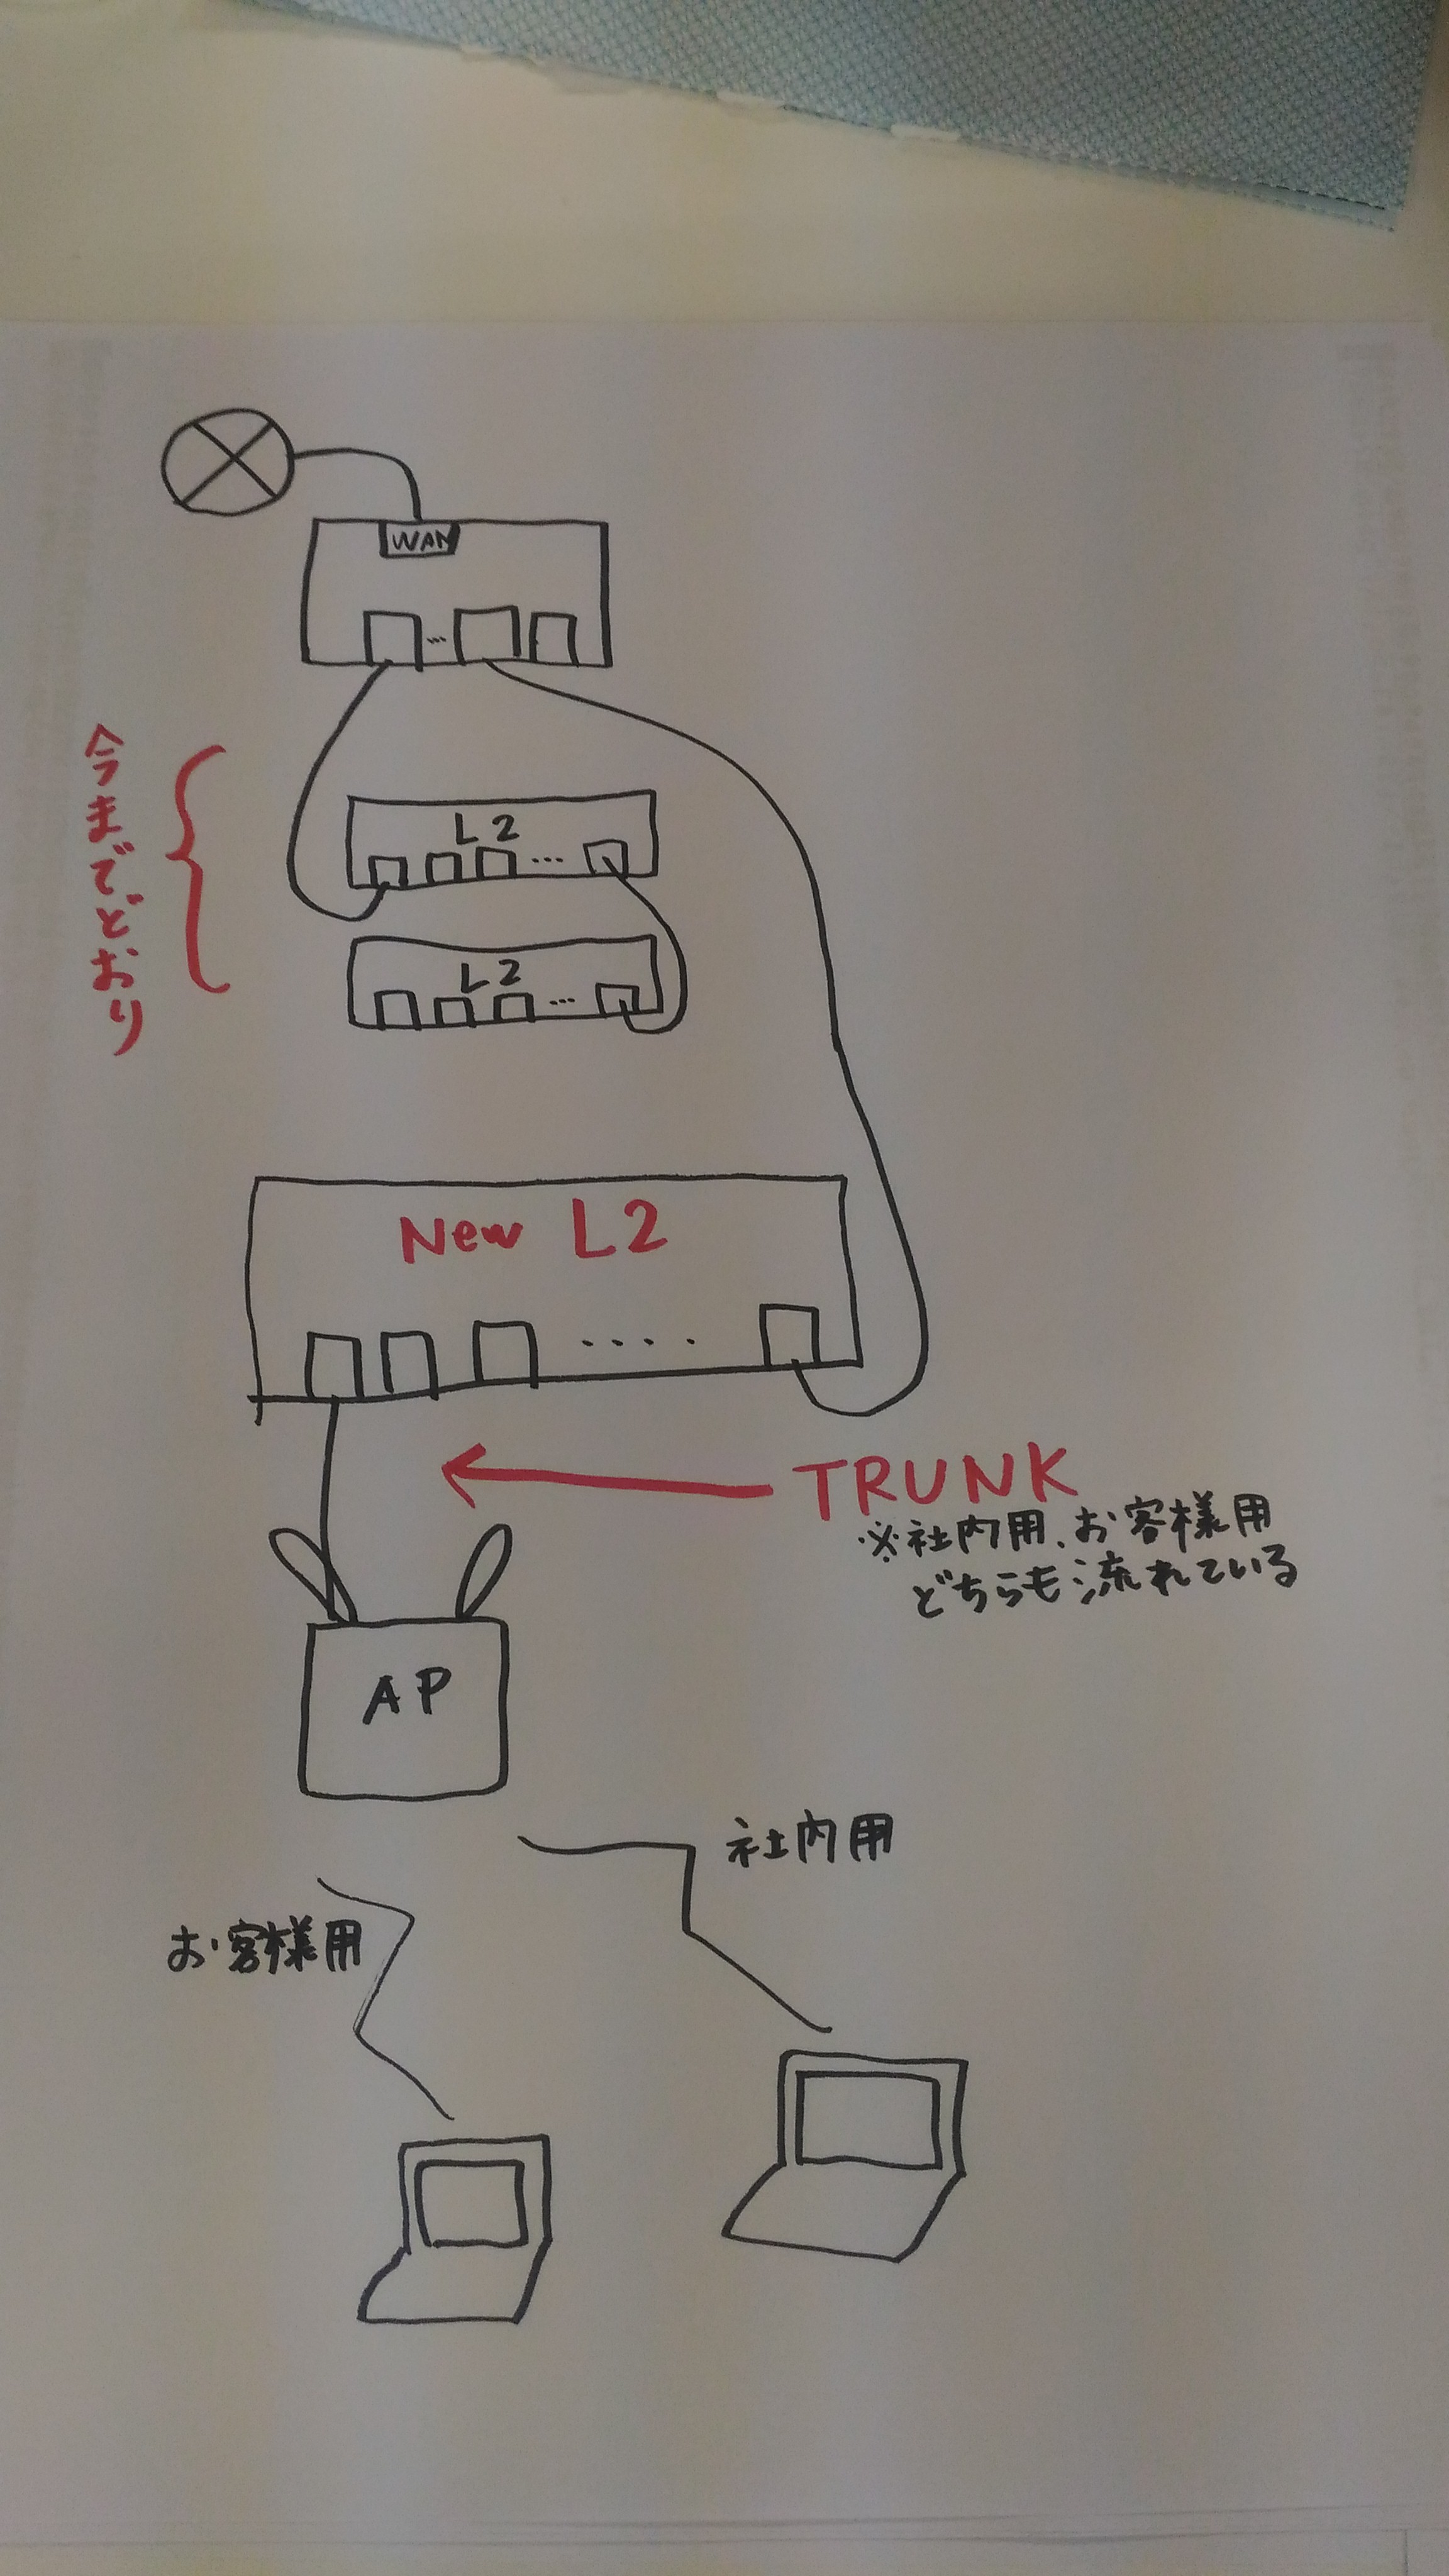 WAN
今までどおり
L2
L2
New L2
TRUNK
※社内用、お客様用
どちらも流れている
AP
社内用
お客様用